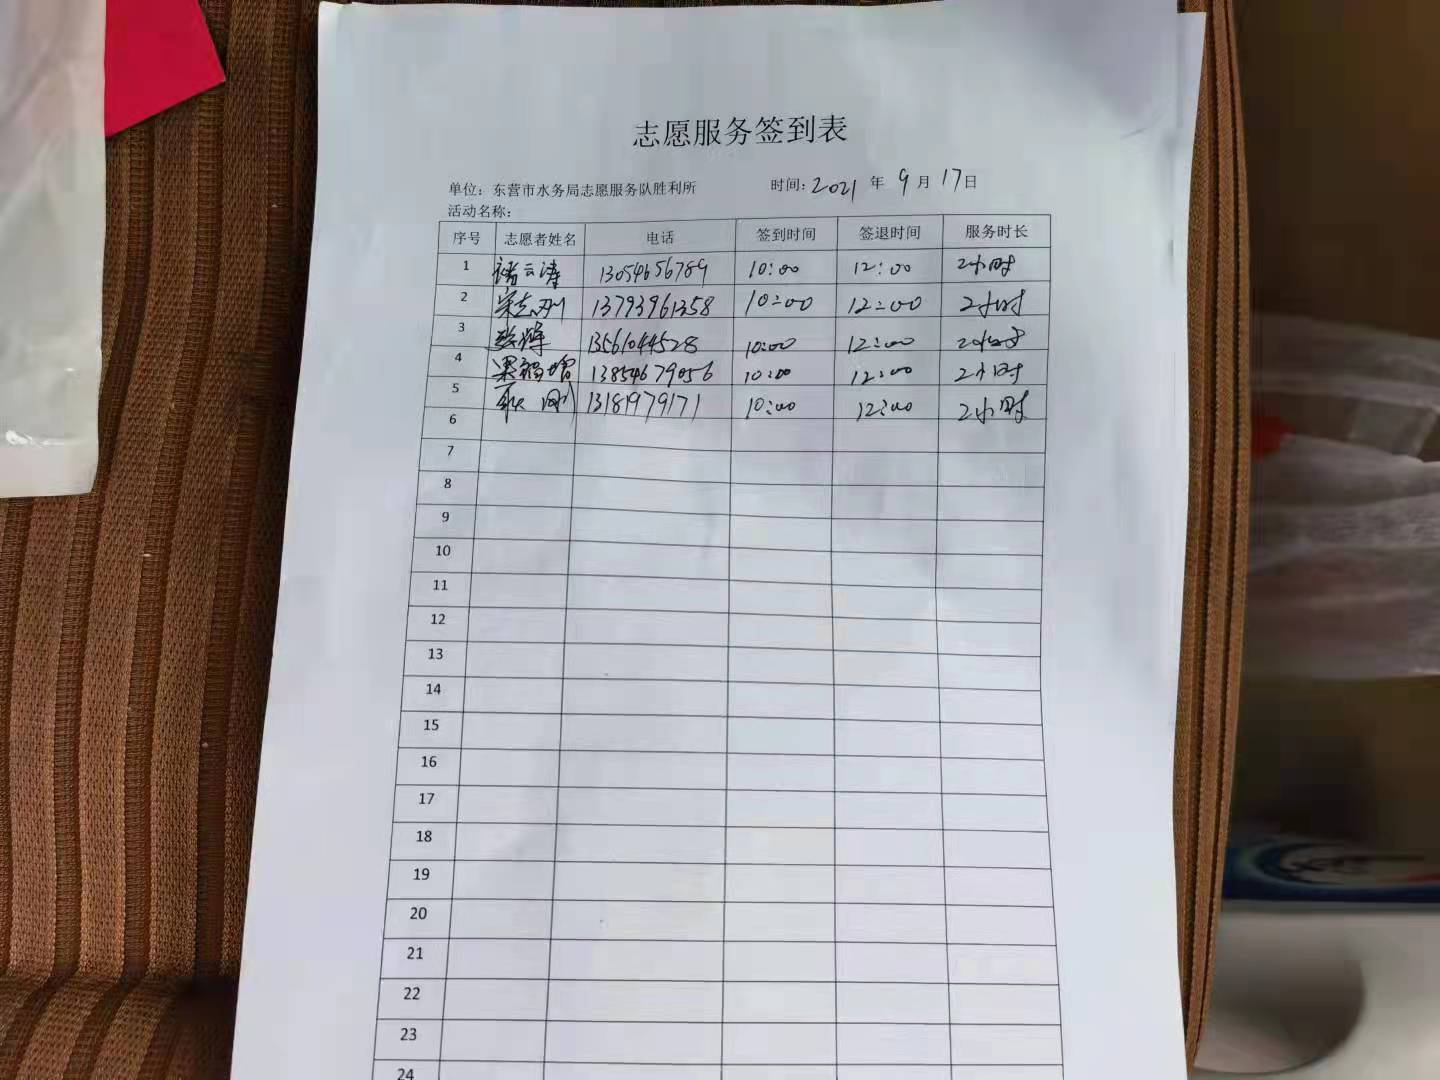 志愿服务签到表
单位：东营市水务局志愿服务队胜利所 时间：2021 年 9 月 17 日
活动名称：
序号 志愿者姓名 电话 签到时间 签退时间 服务时长
1 诸云涛 13054656789 10:00 12:00 2小时
2 宋志刚 13793961358 10:00 12:00 2小时
3 13561044528 10:00 12:00 2小时
4 13854679056 10:00 12:00 2小时
5 13181979171 10:00 12:00 2小时
6
7
8
9
10
11
12
13
14
15
16
17
18
19
20
21
22
23
24